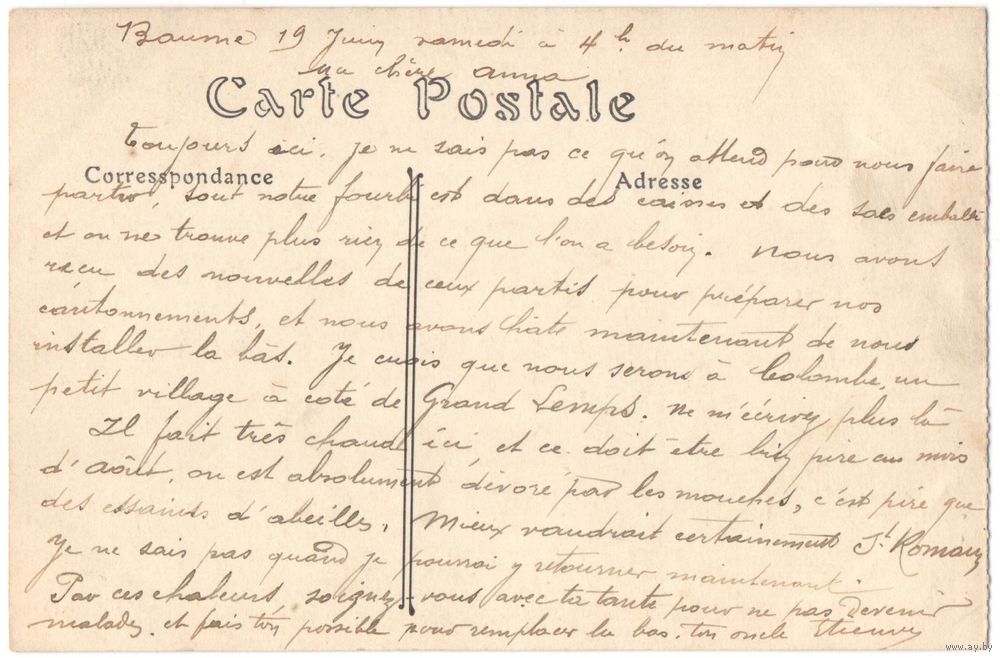 Baume 19 Juin samedi à 4h du matin
Ma chère Anna
Carte Postale
Toujours ici, je ne sais pas ce qu'on attend pour nous faire
Corresspondance Adresse
partir, tout notre est dans des caisses et des sacs emballé
et on ne trouve plus rien de ce que l'on a besoin. Nous avons
reçu des nouvelles de ceux partis pour préparer nos
cantonnements, et nous avons hâte maintenant de nous
installer la bâs. Je crois que nous serons à Colombe, un
petit village à coté de Grand Lemps. Ne m'écrivez plus là
Il fait três chaud ici, et ce doit être bien pire au mois
d'Aôut, on est absolument dévoré par les mouches, c'est pire que
des essaims d'abeilles, Mieux vaudrait certainement St Romain
Je ne sais pas quand je pourrai y retourner maintenant.
Par ces chaleurs, soignez-vous avec ta tante pour ne pas devenir
malades, et fais ton possible pour remplacer la bas. ton oncle Etienne
www.ay.by